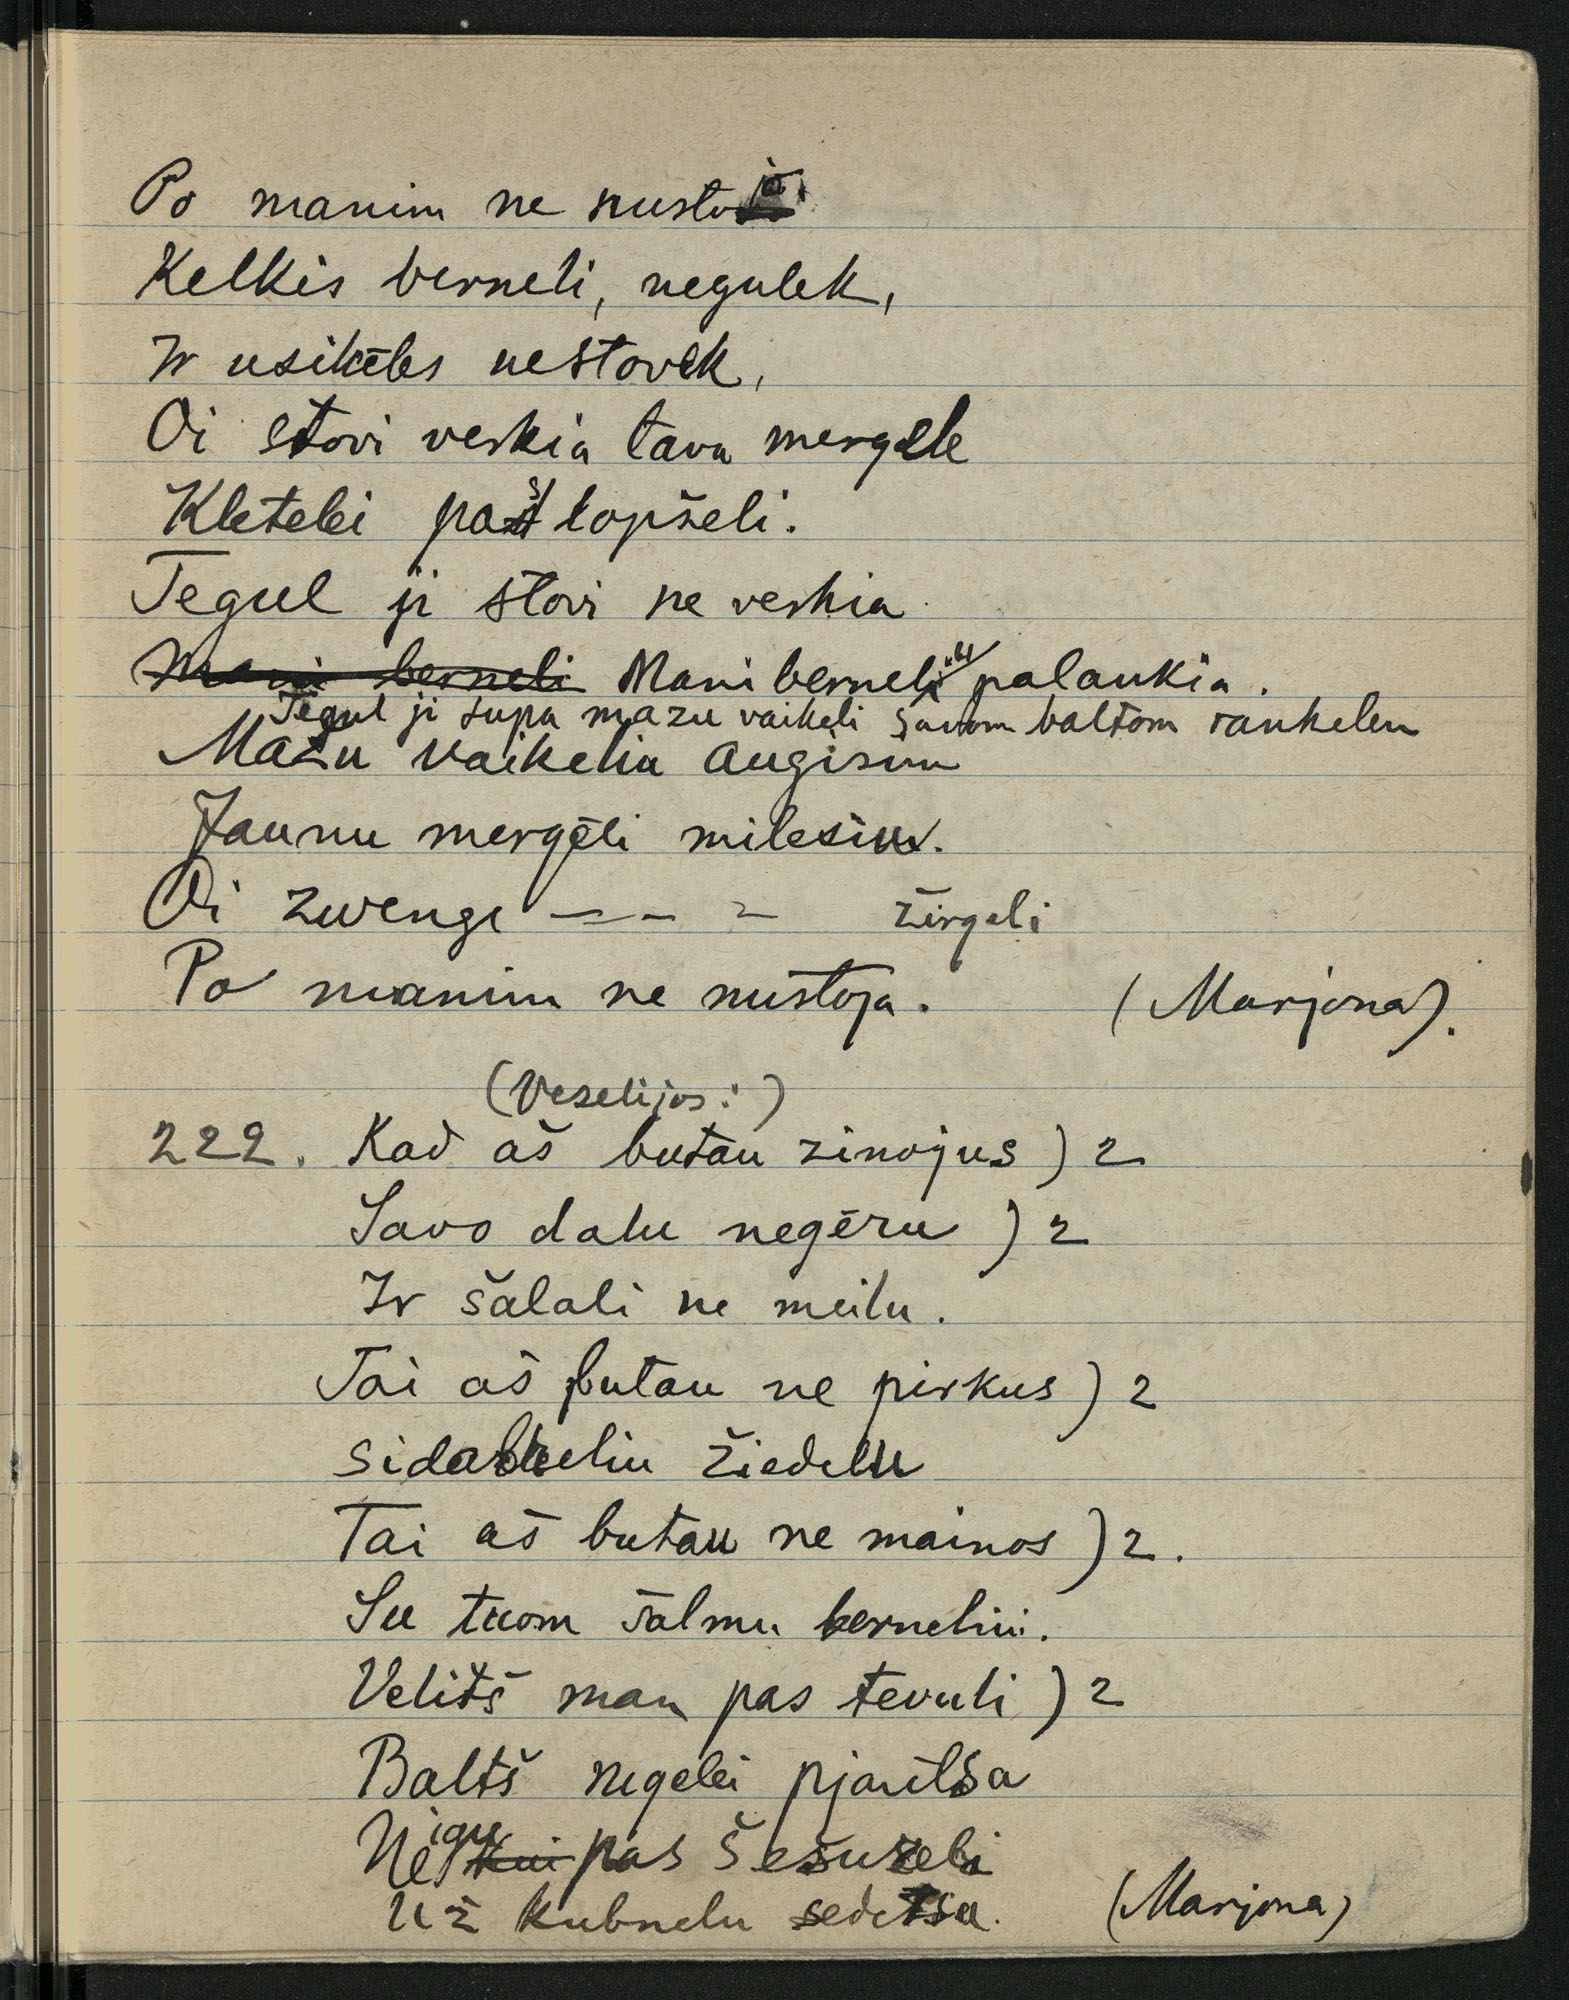 Po manim ne nustoja
Kelkis berneli, negulek,
Ir usikēles nestovek,
Oi stovi verkia tava mergele
Kletelei paš lopšeli.
Tegul ji stovi ne verkia
Mani berneli Mani berneli palaukia.
Tegul ji supa mazu vaikeli savom baltom rankelem
Mazu vaikeliu augisim
Jaunu mergēli milesim.
Oi zwenge — — — žirgeli
Po manim ne nustoja. (Marjona).
(Veselijos:)
222. Kad aš butau zinojus ) 2
Savo dalu negēru ) 2
Ir šalali ne meilu.
Tai aš butau ne pirkus ) 2
sidabreliu žiedelu
Tai aš butau ne mainos ) 2.
Su tuom šalmu berneliu.
Velitš man pas tevuli ) 2
Baltš rugelei pjautsa
Neigu pas šešureli
Už kubnelu sedetsa. (Marjona)